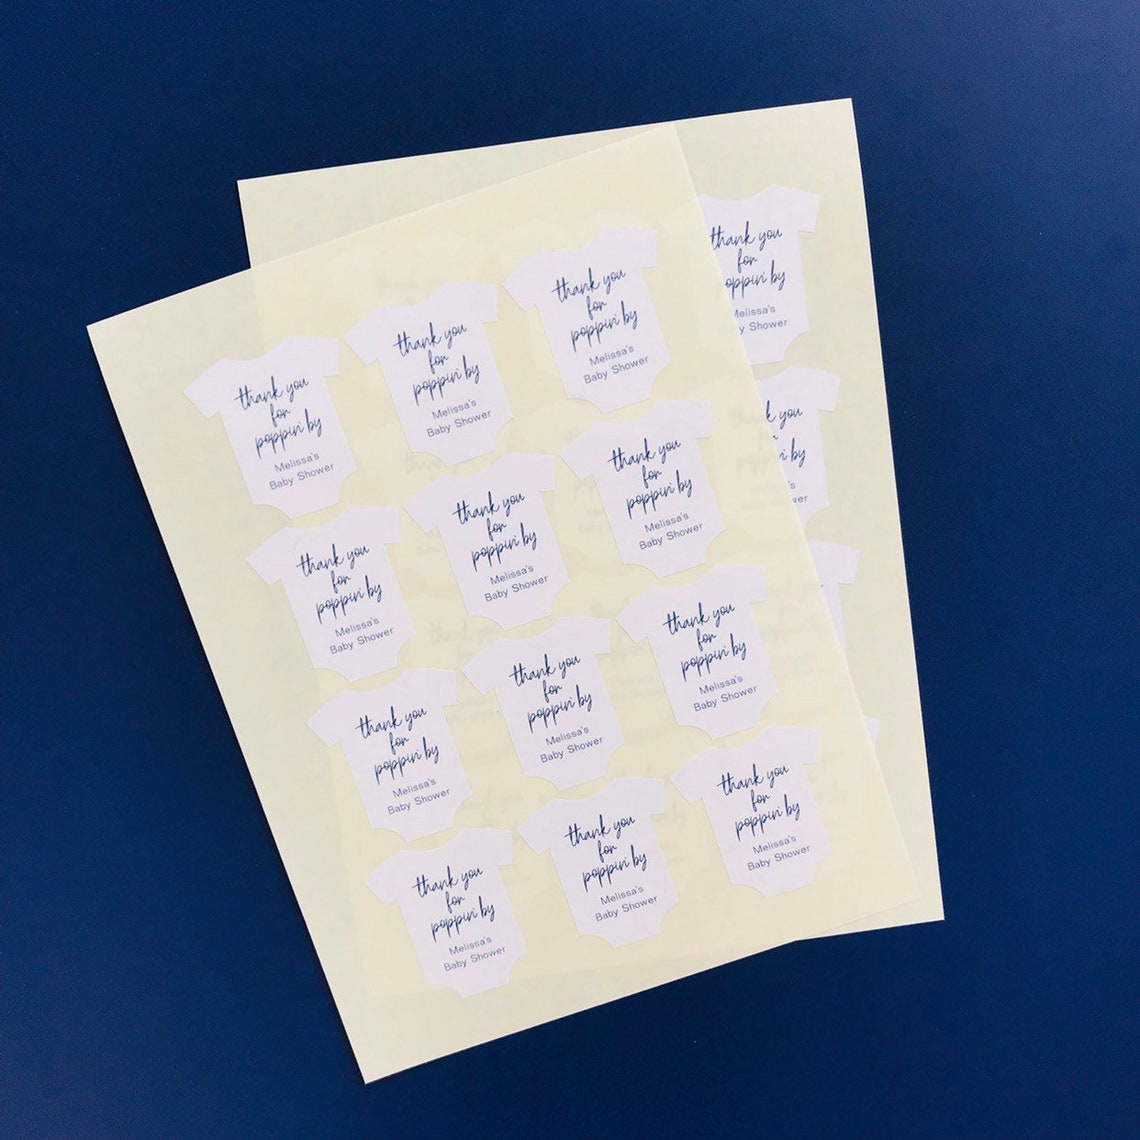 thank you
for
poppin' by
Melissa's
Baby Shower
thank you
for
poppin' by
Melissa's
Baby Shower
thank you
for
poppin' by
Melissa's
Baby Shower
thank you
for
poppin' by
Melissa's
Baby Shower
thank you
for
poppin' by
Melissa's
Baby Shower
thank you
for
poppin' by
Melissa's
Baby Shower
thank you
for
poppin' by
Melissa's
Baby Shower
thank you
for
poppin' by
Melissa's
Baby Shower
thank you
for
poppin' by
Melissa's
Baby Shower
thank you
for
poppin' by
Melissa's
Baby Shower
thank you
for
poppin' by
Melissa's
Baby Shower
thank you
for
poppin' by
Melissa's
Baby Shower
thank you
for
poppin' by
Melissa's
Shower
you
by